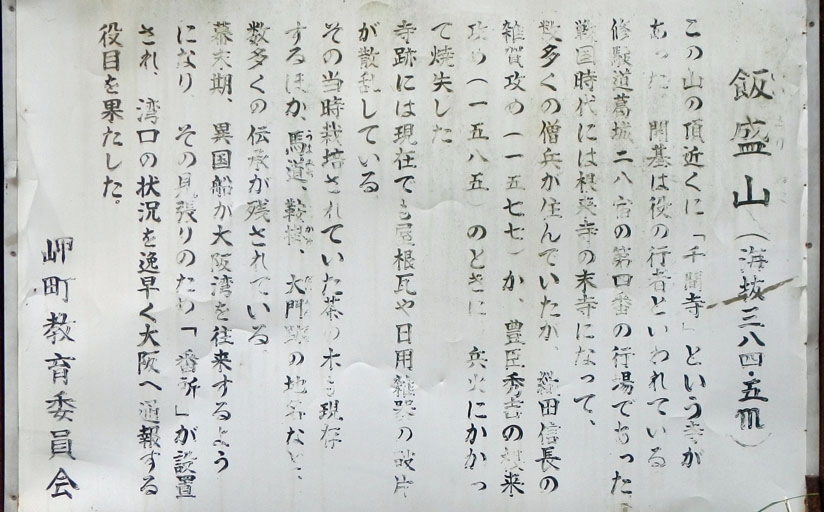 飯盛山（海抜三八四・五m）
この山の頂近くに「千間寺」という寺が
あった 開基は役の行者といわれている
修験道葛城二八宿の第四番の行場であった
戦国時代には根来寺の末寺になって、
数多くの僧兵が住んでいたが、織田信長の
雑賀攻め（一五七七）か、豊臣秀吉の根来
攻め（一五八五）のときに 兵火にかかっ
て焼失した
寺跡には現在でも屋根瓦や日用雑器の破片
が散乱している
その当時栽培されていた茶の木も現存
するほか、馬道、鞍掛、大門跡の地名など、
数多くの伝承が残されている
幕末期、異国船が大阪湾を往来するよう
になり その見張りのため「番所」が設置
され、湾口の状況を逸早く大阪へ通報する
役目を果たした。
岬町教育委員会